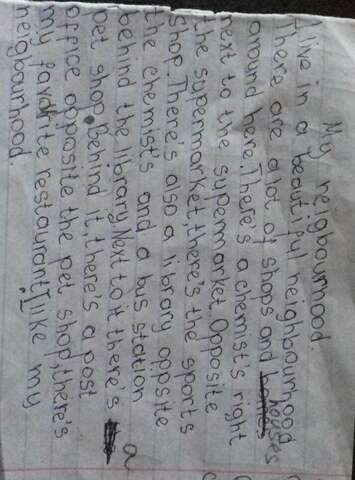 My neigbourhood.
I live in a beautiful neighbourhood
There are alot of shops and houses
around here.There's a chemist's right
next to the supermarket.Opposite
the supermarket,there's the sports
shop.There's also a library oppsite
the chemist's and a bus station
behind the library.Next to it there's a
pet shop.Behind it,there's a post
office opposite the pet shop,there's
my favorite restaurant.I like my
neigbourhood.